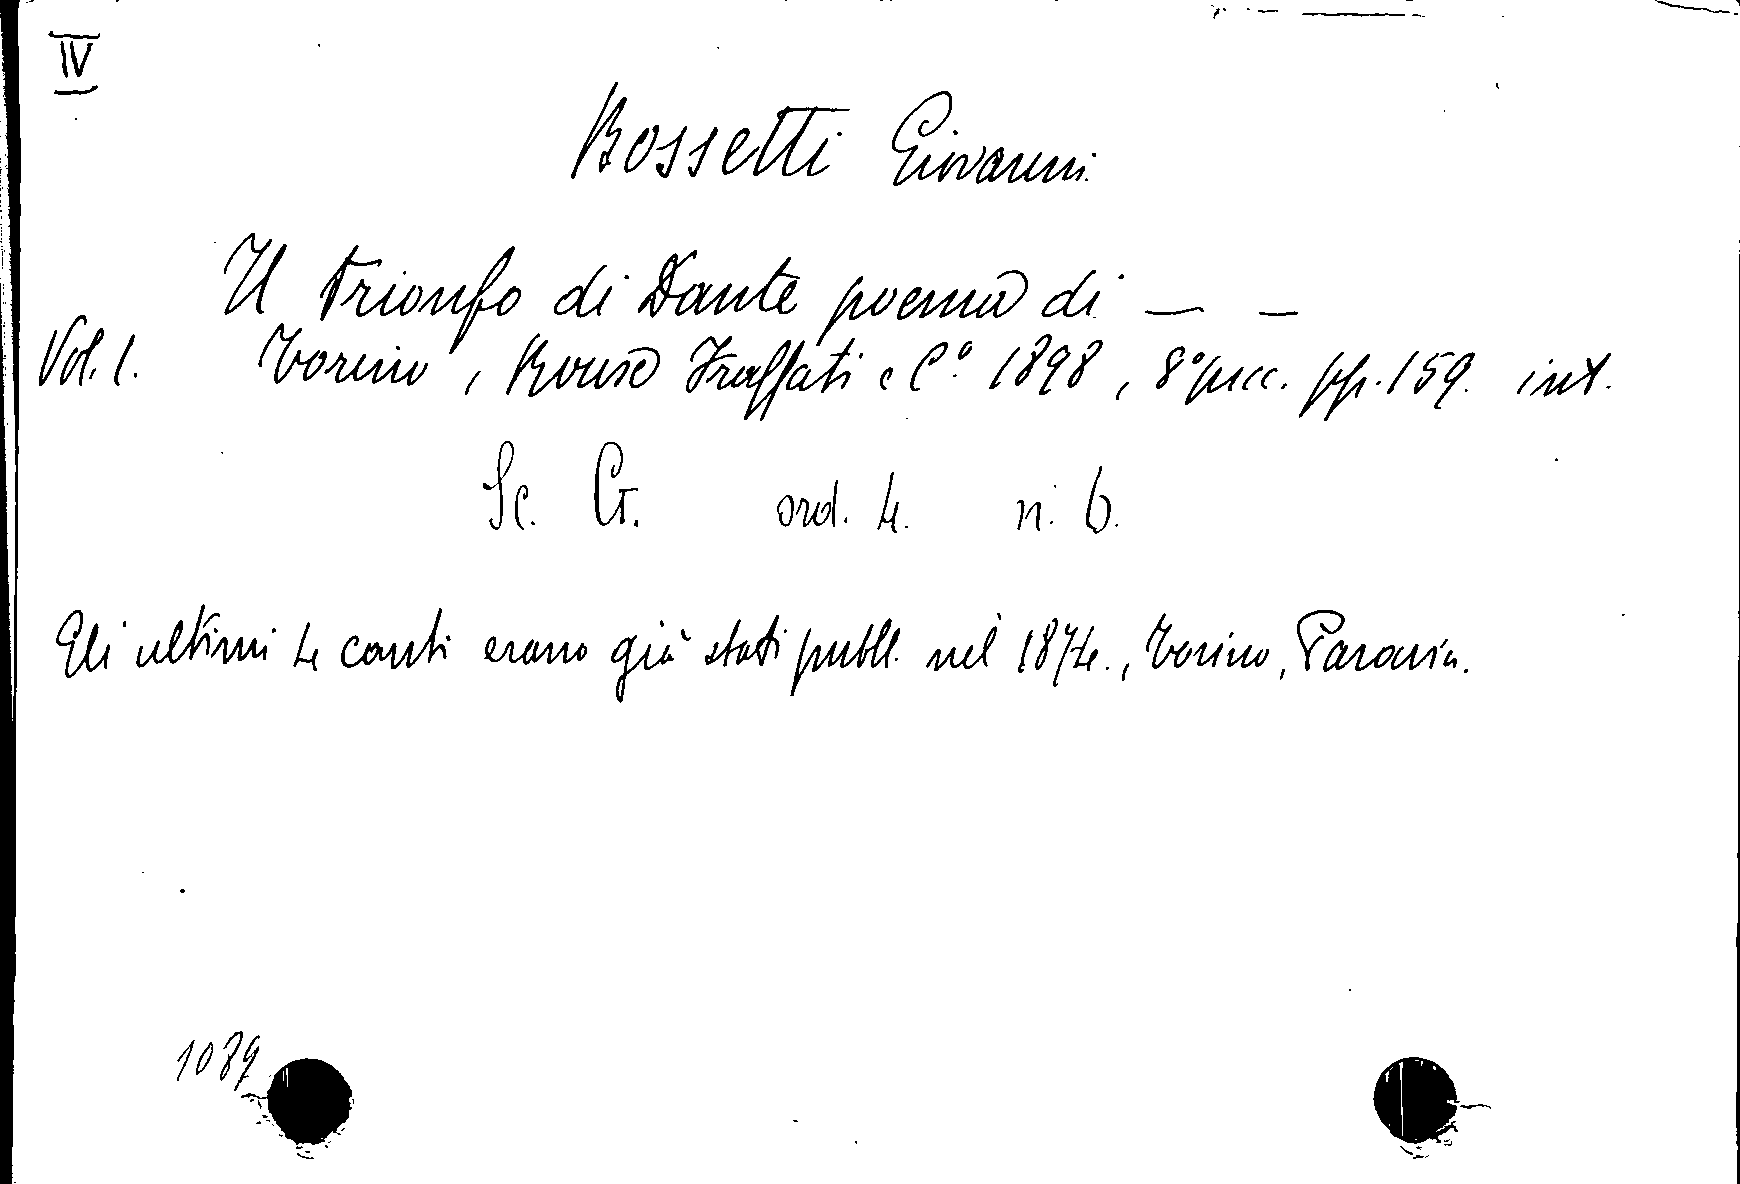 IV
Bossetti Giovanni
Il trionfo di Dante poema di — —
Vol. 1. Torino, Roux Frassati e C.º 1898, 8º picc. pp. 159. int.
Sc. G. ord. 4. n. 6.
Gli ultimi 4 canti erano già stati pubbl. nel 1874., Torino, Paravia.
1089